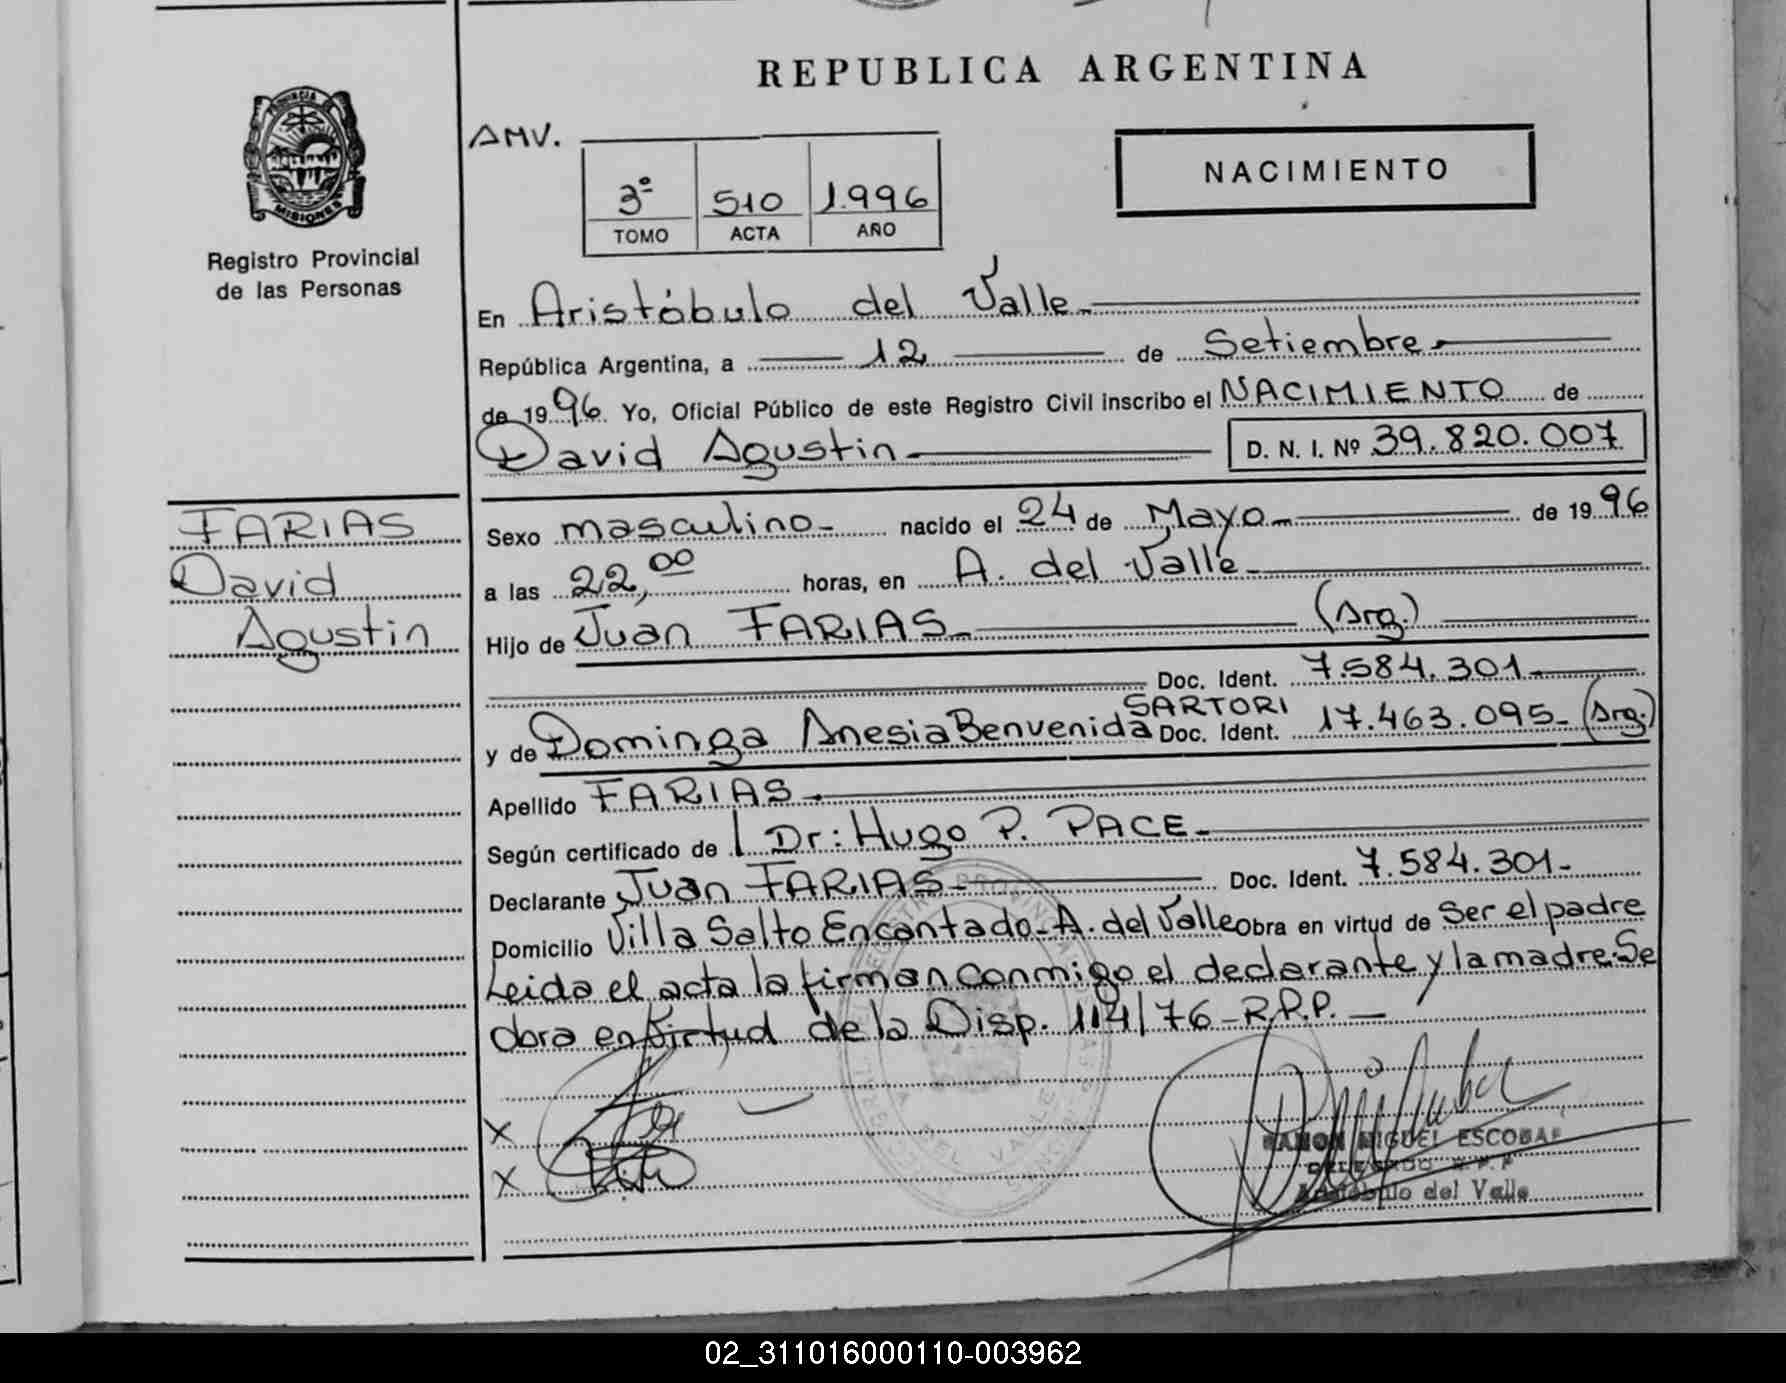 REPUBLICA ARGENTINA
PROVINCIA DE
MISIONES
Registro Provincial
de las Personas
AMV.
3º 510 1.996
TOMO ACTA AÑO
NACIMIENTO
En Aristóbulo del Valle.
República Argentina, a 12 de Setiembre.
de 1996. Yo, Oficial Público de este Registro Civil inscribo el NACIMIENTO de
David Agustin D. N. I. Nº 39.820.007
FARIAS
David
Agustin
Sexo masculino- nacido el 24 de Mayo de 1996
a las 22,00 horas, en A. del Valle.
Hijo de Juan FARIAS (Arg.)
Doc. Ident. 7.584.301
SARTORI
y de Dominga Anesia Benvenida Doc. Ident. 17.463.095- (Arg.)
Apellido FARIAS.
Según certificado de Dr: Hugo P. PACE.
Declarante Juan FARIAS- Doc. Ident. 7.584.301-
Domicilio Villa Salto Encantado-A. del Valle obra en virtud de Ser el padre
Leida el acta la firman conmigo el declarante y la madre. Se
obra en virtud de la Disp. 114/76-R.P.P.
X
X
RAMON MIGUEL ESCOBAR
DELEGADO R.P.P
Aristóbulo del Valle
02_311016000110-003962